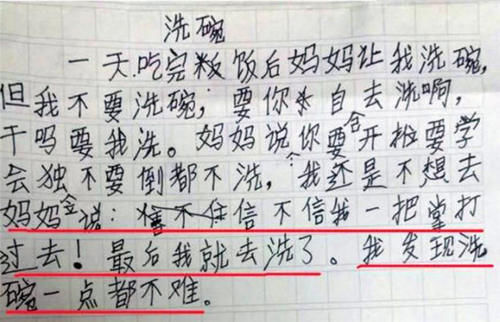 洗碗
一天,吃完粄饭后妈妈让我洗碗,
但我不要洗碗,要你自去洗啊,
干吗要我洗。妈妈说你要合开拉要学
会独不要倒都不洗,个我还是不想去
妈妈合说:信不信我一把掌打
过去!最后我就去洗了。我发现洗
碗一点都不难。